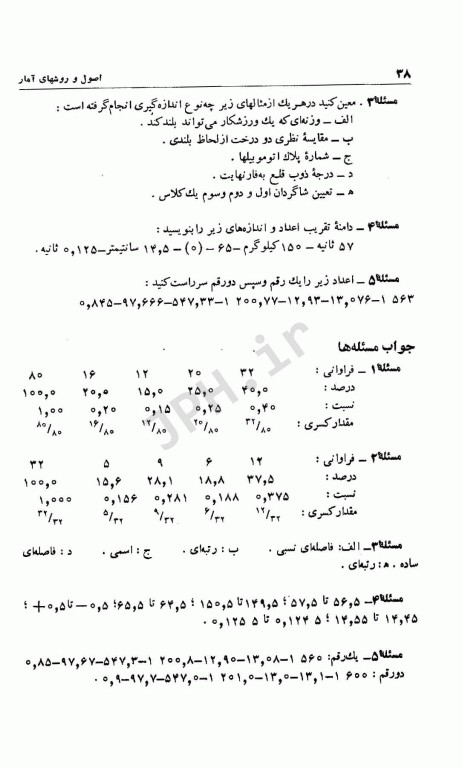 ۳۸ اصول و روشهای آمار
مسئلهٔ۳. معین کنید در هر یك از مثالهای زیر چه نوع اندازه گیری انجام گرفته است :
الف ــ وزنه‌ای که یك ورزشکار می تواند بلند کند .
ب ــ مقایسهٔ نظری دو درخت از لحاظ بلندی .
ج ــ شمارهٔ پلاك اتوموبیلها .
د ــ درجهٔ ذوب قلع به فارنهایت .
ه ــ تعیین شاگردان اول و دوم وسوم یك کلاس .
مسئلهٔ۴ــ دامنهٔ تقریب اعداد و اندازه‌های زیر را بنویسید :
۵۷ ثانیه ــ ۱۵۰ کیلوگرم ــ۶۵ ــ (۰) ــ ۱۴,۵ سانتیمتر ــ ۰,۱۲۵ ثانیه .
مسئلهٔ۵ــ اعداد زیر را یك رقم وسپس دورقم سرراست کنید :
۰,۸۴۵ــ۹۷,۶۶۶ــ۵۴۷,۳۳ــ۱ ۲۰۰,۷۷ــ۱۲,۹۳ــ۱۳,۰۷۶ــ۱ ۵۶۳
جواب مسئله‌ها
مسئلهٔ۱ ــ فراوانی : ۳۲ ۲۰ ۱۲ ۱۶ ۸۰
درصد : ۴۰,۰ ۲۵,۰ ۱۵,۰ ۲۰,۰ ۱۰۰,۰
نسبت : ۰,۴۰ ۰,۲۵ ۰,۱۵ ۰,۲۰ ۱,۰۰
مقدار کسری : ۳۲/۸۰ ۲۰/۸۰ ۱۲/۸۰ ۱۶/۸۰ ۸۰/۸۰
مسئلهٔ۲ ــ فراوانی : ۱۲ ۶ ۹ ۵ ۳۲
درصد : ۳۷,۵ ۱۸,۸ ۲۸,۱ ۱۵,۶ ۱۰۰,۰
نسبت : ۰,۳۷۵ ۰,۱۸۸ ۰,۲۸۱ ۰,۱۵۶ ۱,۰۰۰
مقدار کسری : ۱۲/۳۲ ۶/۳۲ ۹/۳۲ ۵/۳۲ ۳۲/۳۲
مسئلهٔ۳ــ الف: فاصله‌ای نسبی . ب : رتبه‌ای . ج : اسمی . د : فاصله‌ای
ساده . ه : رتبه‌ای .
مسئلهٔ۴ــ ۵۶,۵ تا ۵۷,۵؛ ۱۴۹,۵ تا ۱۵۰,۵ ؛ ۶۴,۵ تا ۶۵,۵؛ ۰,۵ ــ تا ۰,۵+ ؛
۱۴,۴۵ تا ۱۴,۵۵ ؛ ۰,۱۲۴ ۵ تا ۰,۱۲۵ ۵ .
مسئلهٔ۵ــ یك رقم: ۰,۸۵ــ۹۷,۶۷ــ۵۴۷,۳ــ۱ ۲۰۰,۸ــ۱۲,۹۰ــ۱۳,۰۸ــ۱ ۵۶۰
دورقم : ۰,۹ــ۹۷,۷ــ۵۴۷,۰ــ۱ ۲۰۱,۰ــ۱۳,۰ــ۱۳,۱ــ۱ ۶۰۰ .
JPH.ir